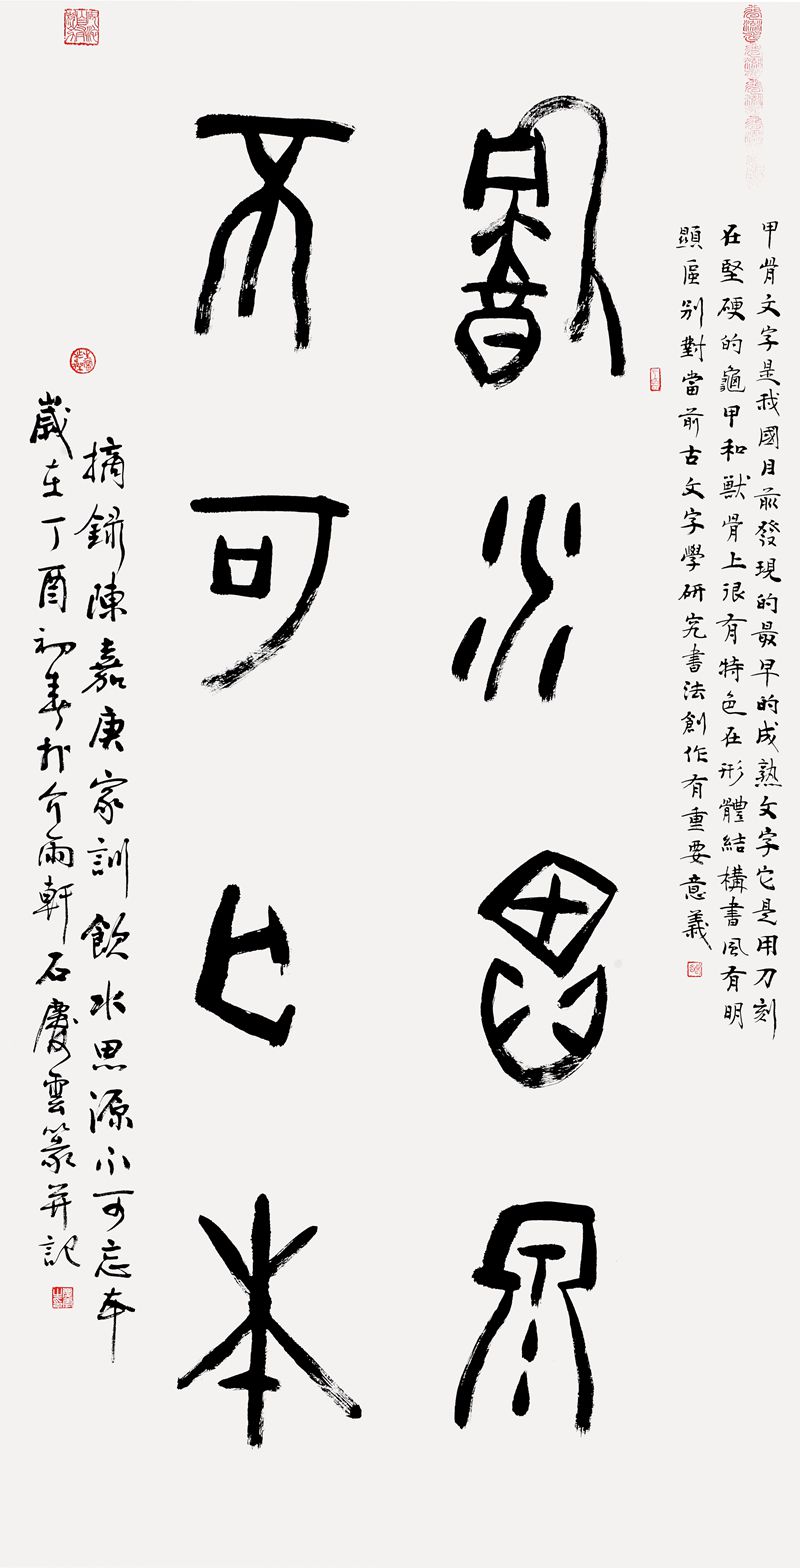 甲骨文字是我國目前發現的最早的成熟文字它是用刀刻
在堅硬的龜甲和獸骨上很有特色在形體結構書風有明
顯區别對當前古文字學研究書法創作有重要意義
飲水思源
不可亡本
摘録陳嘉庚家訓飲水思源不可忘本
歲在丁酉初春於介雨軒石慶雲篆并記